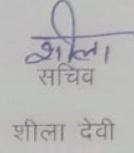 शीला
सचिव
शीला देवी